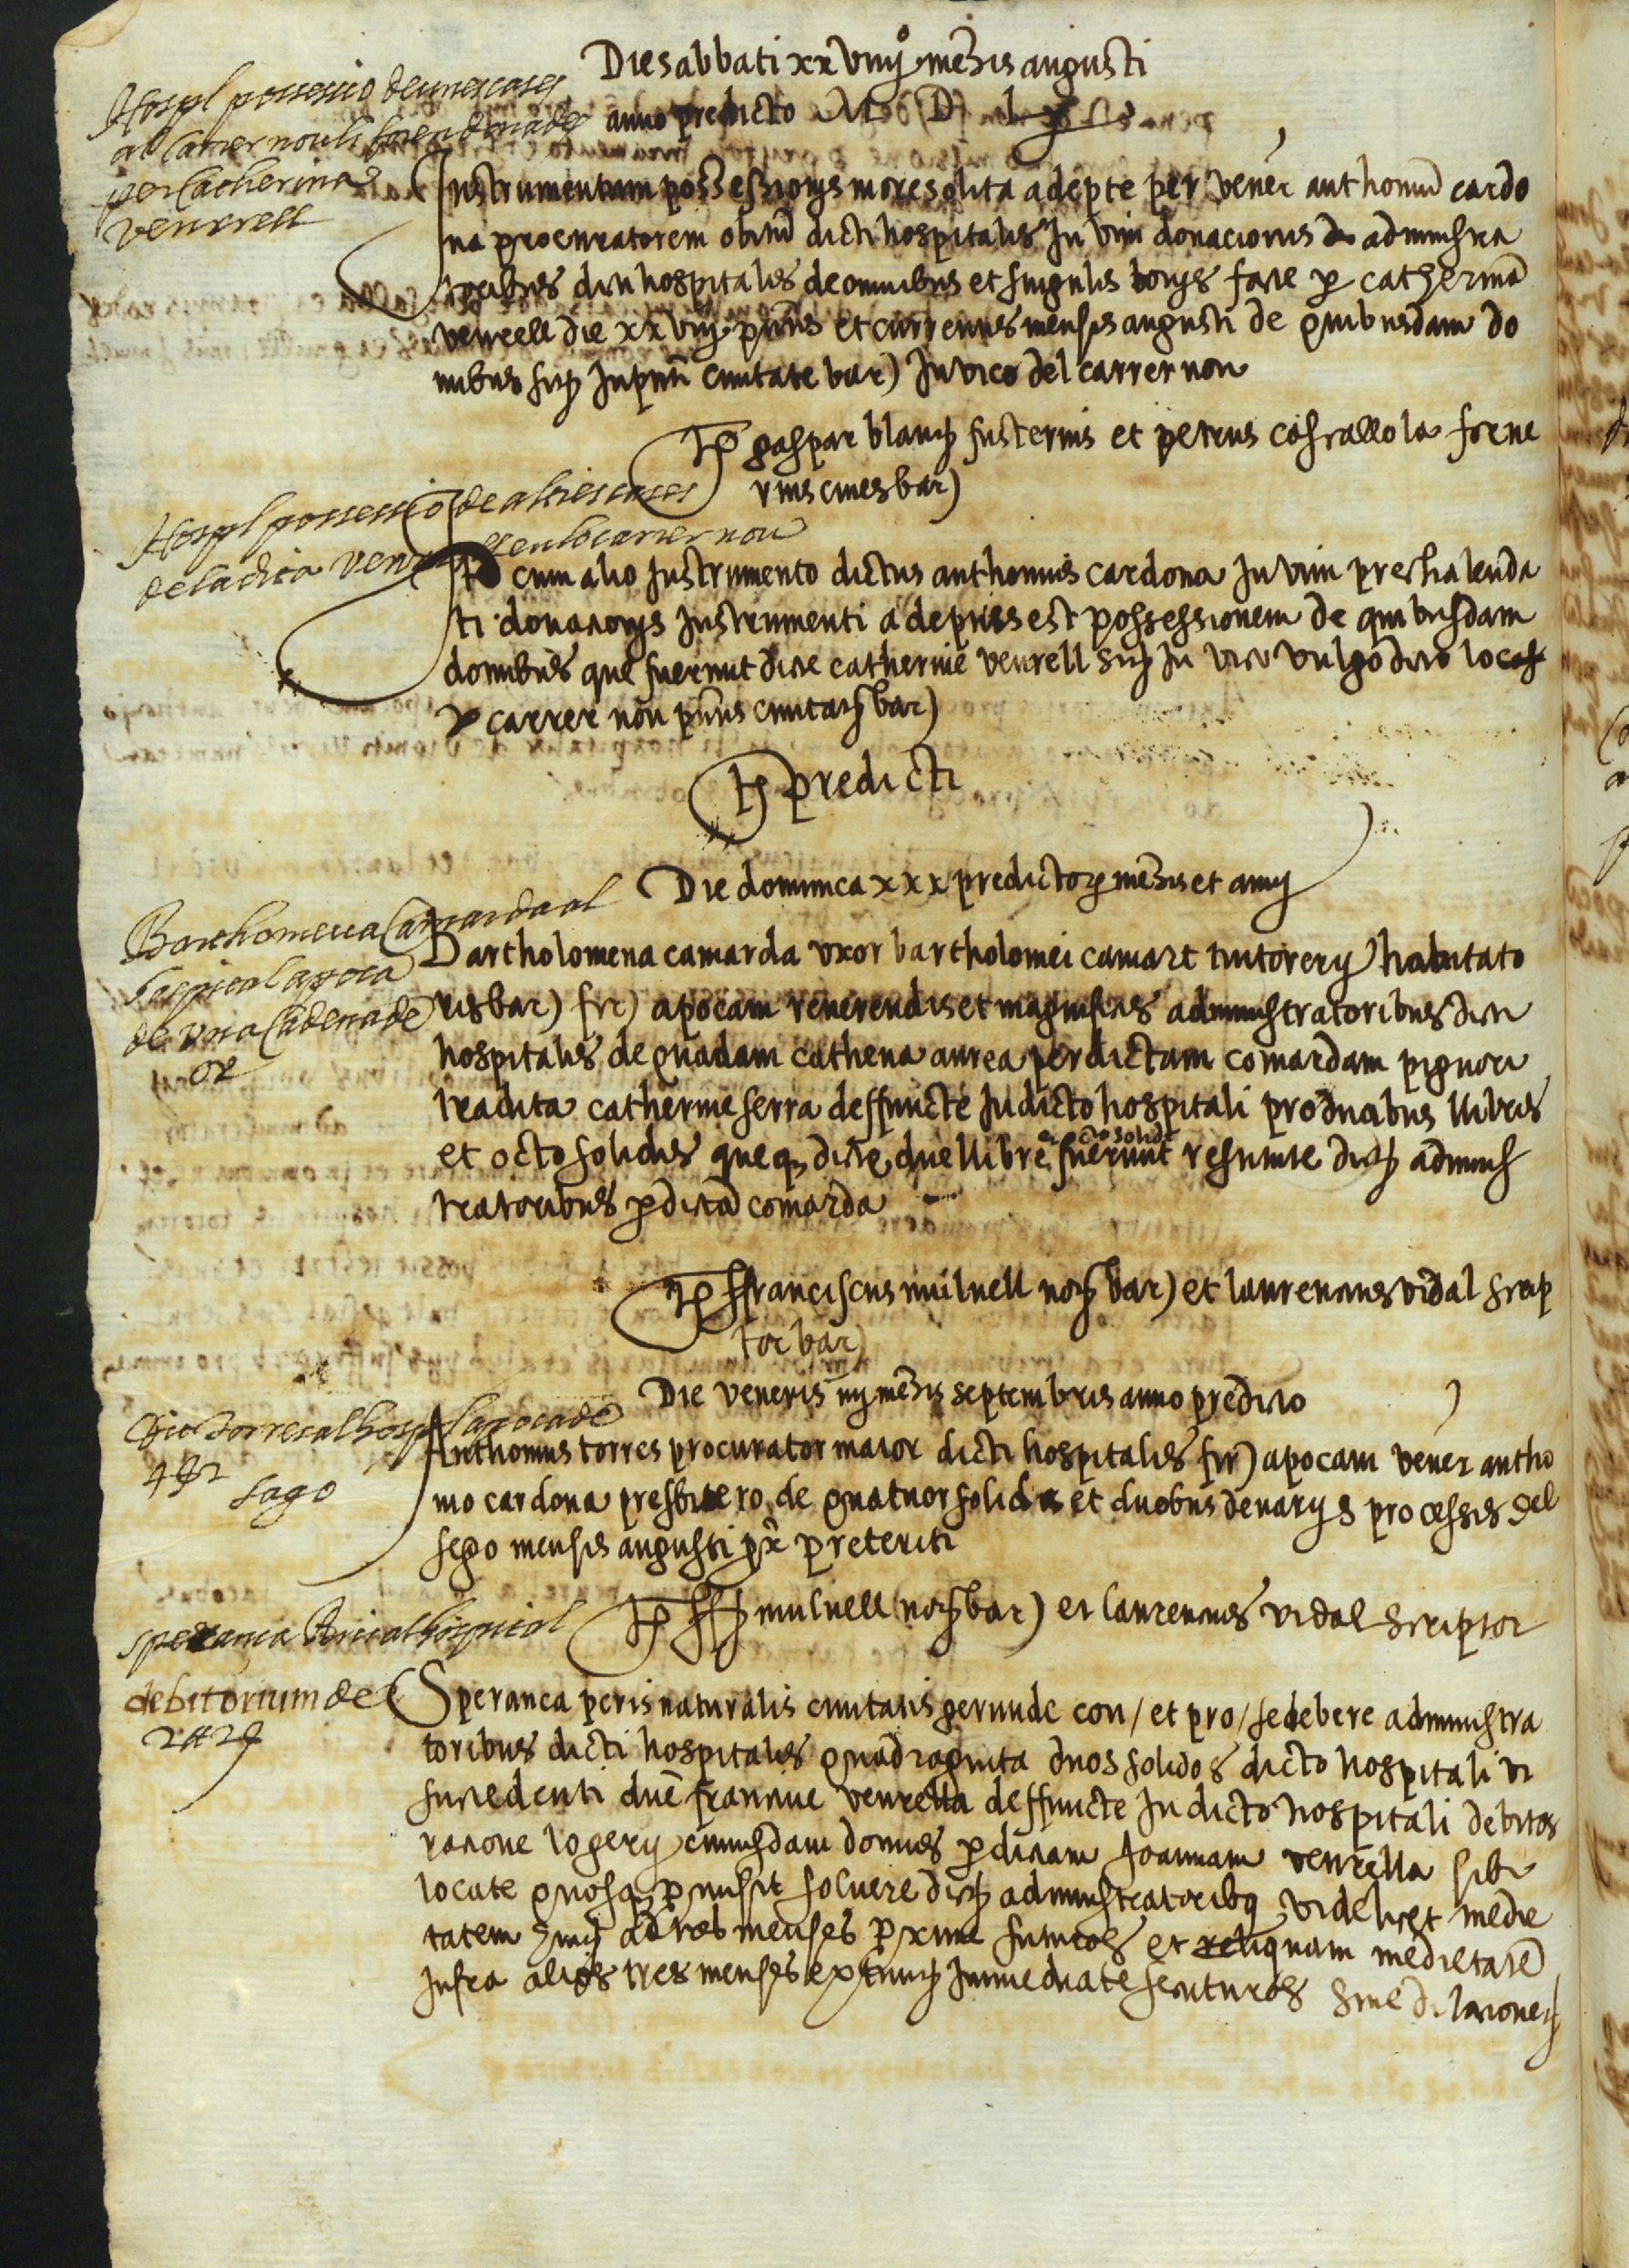 Die sabbati xxviiijº mensis augusti
anno predicto M D l x
Hospl possessio de unes cases
al carrer nou
per Catherina
Venrrell
Instrumentum possessionys more solita adepte per vener anthoniu cardo
na procuratorem obtiu dicti hospitalis In vim donacionis administra
toribus dicti hospitalis de omnibus et singulis bonys facte p catherina
venrell die xxviij pntis et currentis mensis augusti de quibusdam do
mibus sitz In pnti civitate bar) In vico del carrer nou
Tes gaspar blanch fusterius et petrus casrallola forne
rius cives bar)
Hospl possessio de altres cases
de la dita venrell en lo carrer nou
Ite cum alio Instrumento dictus anthonius cardona In vim prechalenda
ti donacionys Instrumenti adeptus est possessionem de quibusdam
domibus que fuerunt dicte catherine venrell sitz In vico vulgo dicto
carrer nou pntis civitatis bar)
Ts predicti
Die dominica xxx predictorz mensis et anny
Barthomeua Camarda al
hospital apoca
de una Cadena de
or
Bartholomeua camarda uxor bartholomei camart tintorery habitato
ris bar) fir) apocam reverendis et magnificis administratoribus dicti
hospitalis de quadam cathena aurea per dictam comardam pignori
tradita catherine serra deffuncte In dicto hospitali pro duabus llibris
et octo solidis que qz dicte due llibre et octo solidi fuerunt restitute dictz adminis
tratoribus p dicta comarda
Tes ffranciscus mulnell notz bar) et laurencius vidal scrip
tor bar)
Die veneris iiij mensis septembris anno predicto
torres al hospl apoca de
4 s 2
sago
Anthonius torres procurator maior dicti hospitalis fir) apocam vener antho
nio cardona presbitero de quatuor solidis et duobus denarys processis del
sego mensis augusti px preteriti
Tes mulnell notz bar) et laurencius vidal scriptor
speranca Peris al hospital
debitorium de
2 tt 2 s
Speranca peris naturalis civitatis gerunde con/ et pro/ se debere administra
toribus dicti hospitalis quadraginta duos solidos dicto hospitali ut
succedenti dne venrella deffuncte In dicto hospitali debitos
racione logery cuiusdam domus p dictam Joannam venrella sibi
locate quosqz pmisit solvere dictz administratoribus videlicet medie
tatem ad tres menses pxime futuros et reliquam medietate
Infra alios tres menses extunc Immediate senturos sine dilacione